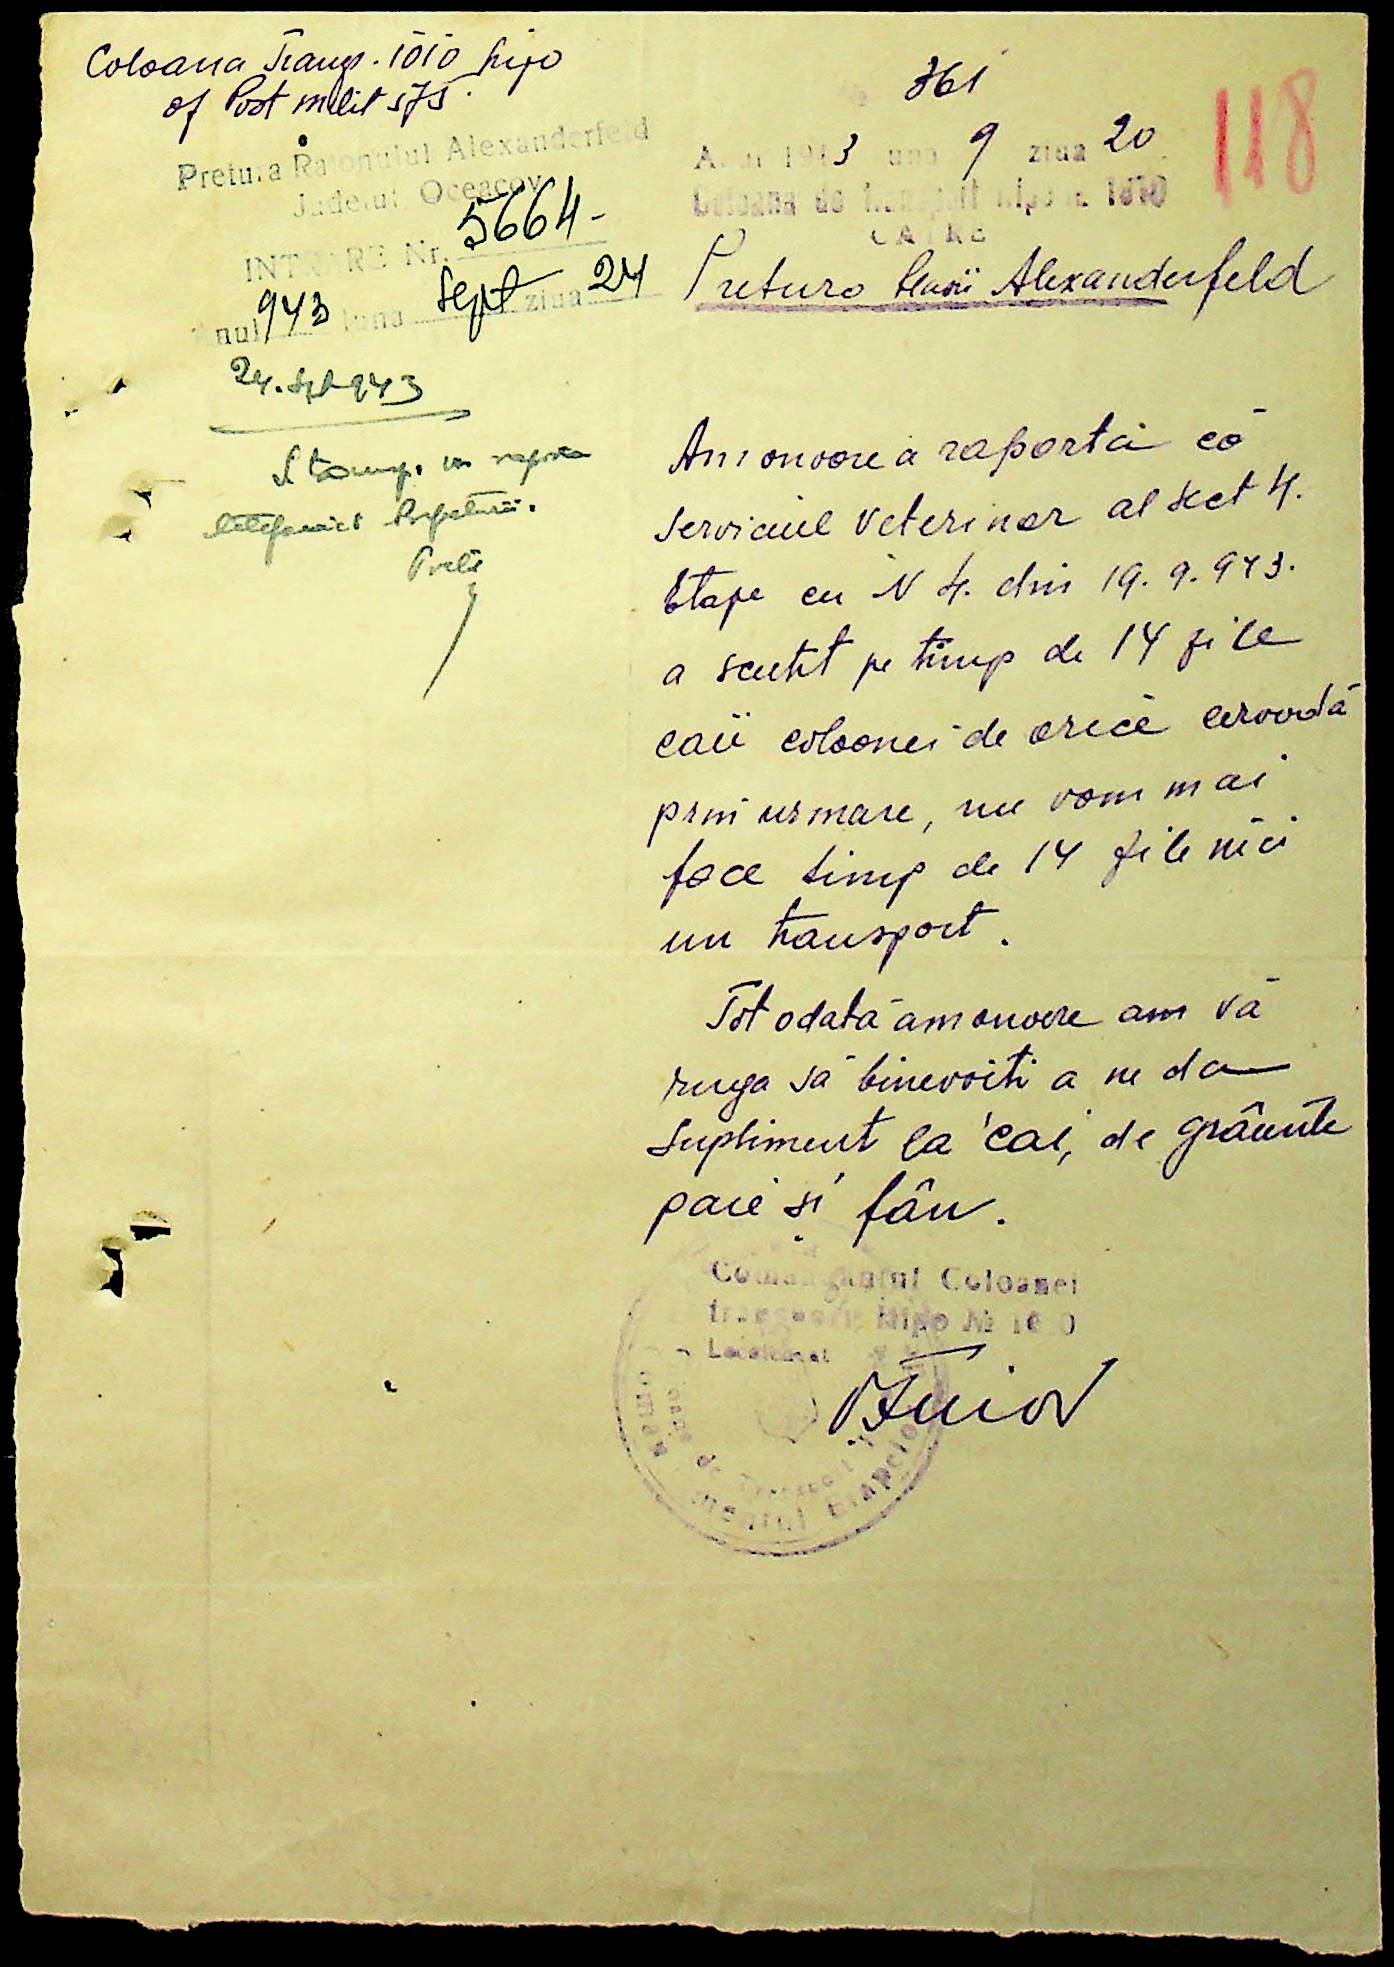 Coloana Transp. 1010 hipo
of Post milit 575.
Pretura Raionului Alexanderfeld
Judetul Oceacov
INTRARE Nr. 5664-
Anul 943 luna Sept ziua 24
24. Spt 943
telefonict
361
118
Anul 1943 una 9 ziua 20
Coloana de transport hipo n. 1010
CATRE
Pretura Alexanderfeld
Am onoare a raporta că
serviciul Veterinar al sect 4.
Etape cu N 4. din 19. 9. 943.
a scutit pe timp de 14 zile
caii coloanei de orice corvodă
prin urmare, nu vom mai
face timp de 14 zile nici
un transport.
Tot odată am onoare am vă
ruga să binevoiti a ne da
supliment la cai, de grăunte
paie și fân.
Comandantul Coloanei
transport Hipo № 1010
Locotenent